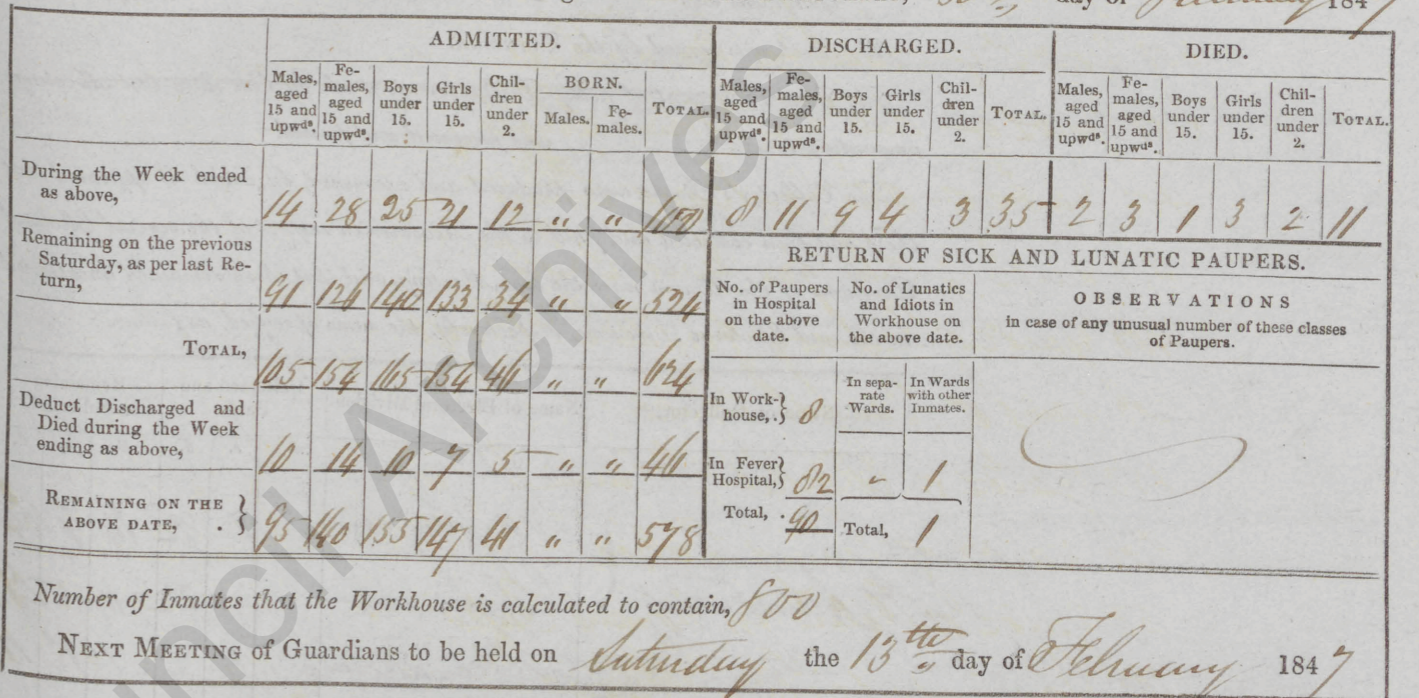 day of February 1847
ADMITTED. DISCHARGED. DIED.
Males, aged 15 and upwds. Females, aged 15 and upwds. Boys under 15. Girls under 15. Children under 2. BORN. Males. Females. TOTAL. Males, aged 15 and upwds. Females, aged 15 and upwds. Boys under 15. Girls under 15. Children under 2. TOTAL. Males, aged 15 and upwds. Females, aged 15 and upwds. Boys under 15. Girls under 15. Children under 2. TOTAL.
During the Week ended as above, 14 28 25 21 12 " " 100 8 11 9 4 3 35 2 3 1 3 2 11
Remaining on the previous Saturday, as per last Return, 91 126 140 133 34 " " 524
TOTAL, 105 154 165 154 46 " " 624
Deduct Discharged and Died during the Week ending as above, 10 14 10 7 5 " " 46
REMAINING ON THE ABOVE DATE, . 95 140 155 147 41 " " 578
RETURN OF SICK AND LUNATIC PAUPERS.
No. of Paupers in Hospital on the above date.
No. of Lunatics and Idiots in Workhouse on the above date.
OBSERVATIONS
in case of any unusual number of these classes of Paupers.
In separate Wards. In Wards with other Inmates.
In Workhouse, . 8
In Fever Hospital, 82 " 1
Total, . 90 Total, 1
Number of Inmates that the Workhouse is calculated to contain, 800
NEXT MEETING of Guardians to be held on Saturday the 13th day of February 1847
uncil Archives